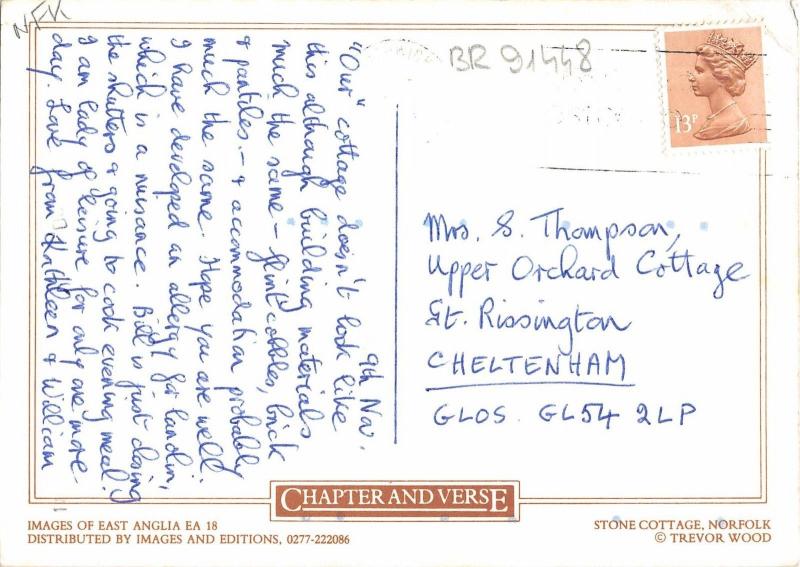 NFK
BR 91448
13P
9th Nov.
"Our" cottage doesn't look like
this although building materials
much the same – flint cobbles, brick
& pantiles. – & accommodation probably
much the same. Hope you are well.
I have developed an allergy for
which is a nuisance. Bill is just closing
the shutters & going to cook evening meal.
I am lady of leisure for only one more
day. Love from Kathleen & William
Mrs. S. Thompson,
Upper Orchard Cottage
Gt. Rissington
CHELTENHAM
GLOS. GL54 2LP
CHAPTER AND VERSE
IMAGES OF EAST ANGLIA EA 18
DISTRIBUTED BY IMAGES AND EDITIONS, 0277-222086
STONE COTTAGE, NORFOLK
© TREVOR WOOD